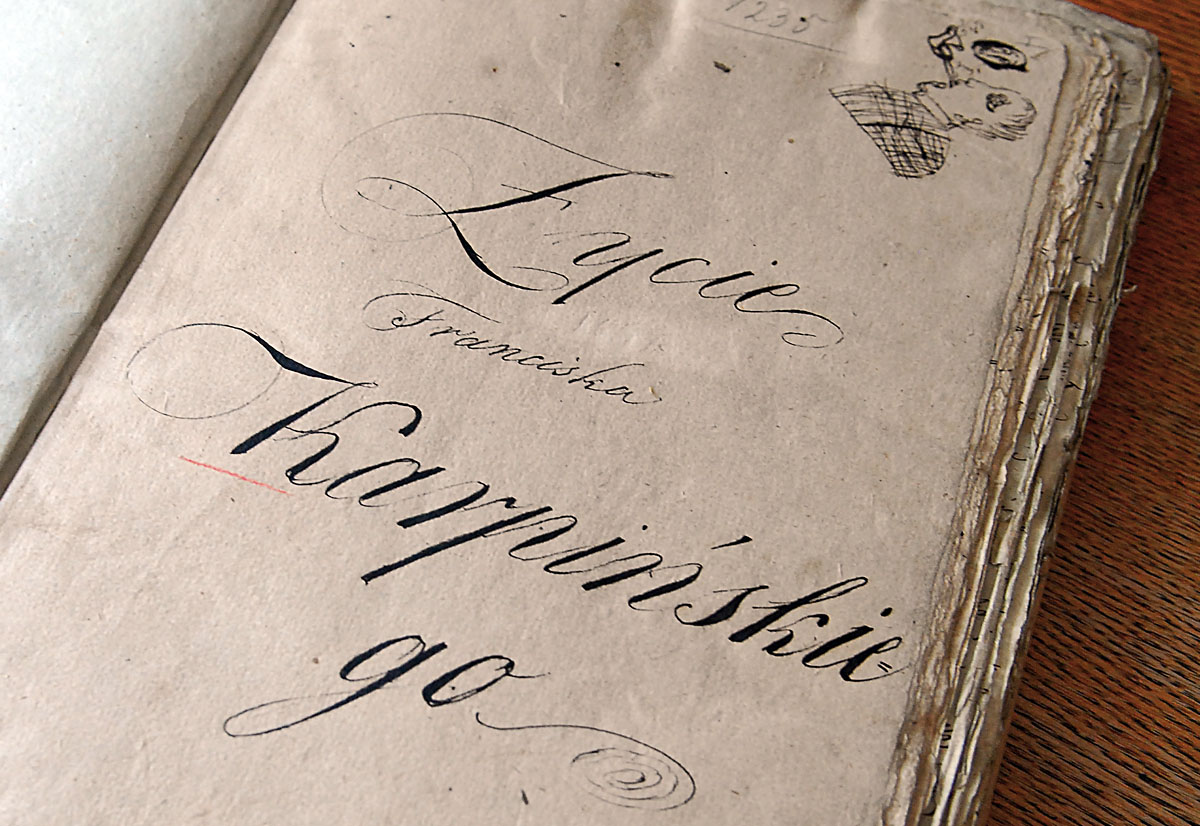 1235
Życie
Franciszka
Karpińskie=
go